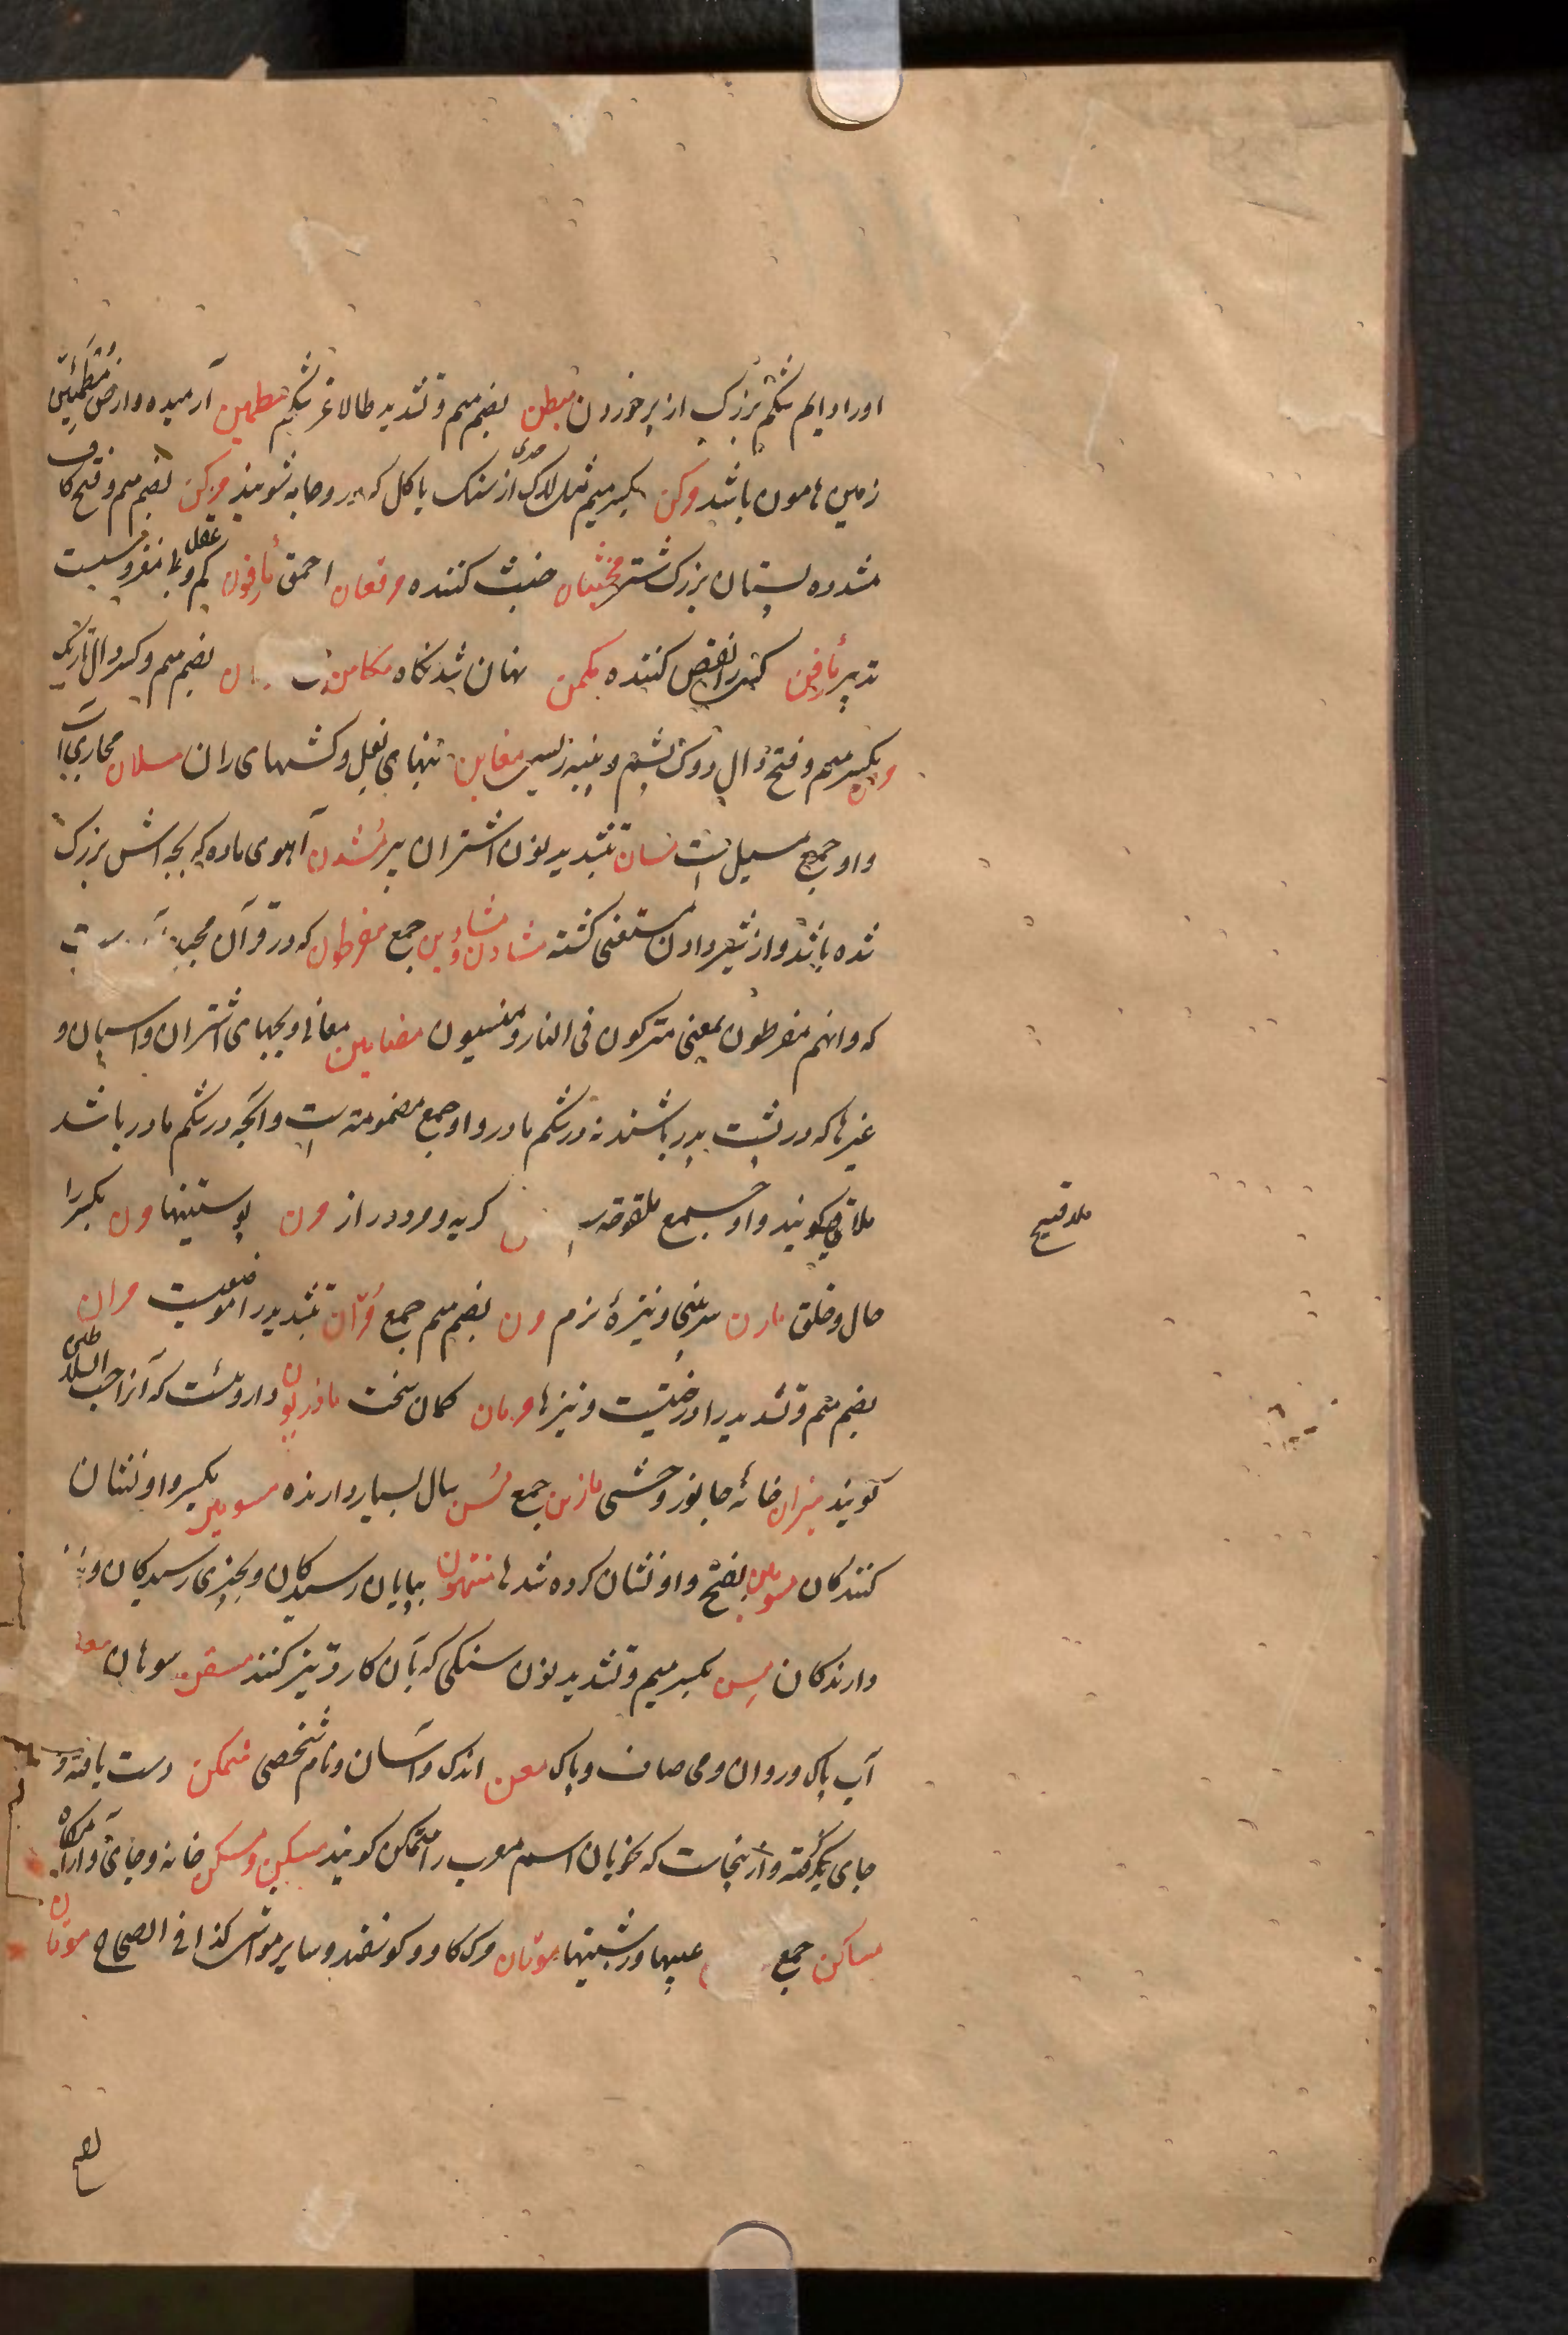 اورا دایم شکم بزرک از پر خوردن مبطن بضم میم و تشدید طا لاغر شکم مطمین آرمیده و ارض مُطمَئِنّ
زمین هامون باشد مرکن بکسر میم مثل لاوک از سنک یا کل که در و جامه شویند مرکن بضم میم و فتح کاف
مشدده پستان بزرک شتر مخبثان خبث کننده مرقعان احمق مأفون کم عقل و بی مغز و سست
تدبیر مأفن کسی را نقص کننده مکمن نهان شدنکاه مکامن بضم میم و کسر دال تاریک
و بکسر میم و فتح دال دوک پشم و پنبه ریسی مغابن بنهای بغل و کشهای ران مسلان مجاری آب
و او جمع مسیل است مسان بتشدید نون اشتران پیر مُشدن آهوی ماده که بچه اش بزرک
شده باشد و از شیر دادن مستغنی کشته مشادن و مشادین جمع مفرطون که در قرآن مجید
که و انهم مفرطون بمعنی متروکون فی النار و منسیون مضامین معانی و بچهای اشتران و اسبان و
غیرها که در پشت پدر باشند نه در شکم مادر و او جمع مضمونه است و آنچه در شکم مادر باشد
ملاقیح کویند و او جمع ملقوحه کریه و مرد دراز مرن پوستینها مرن بکسر را
حال و خلق مارن سر بینی و نیزهٔ نرم مرن بضم میم جمع مُرّان بتشدید را موضعیست مران
بضم میم و تشدید را درختیست و نیزها مرنان کمان سخت ماذریون داروئیست که آنرا حب السلاطین
کویند میزان خانهٔ جانور وحشی مازن جمع مُسن سال بسیار دارنده مسومین بکسر واو نشان
کنندکان مسومین بفتح واو نشان کرده شدها منتهون بپایان رسیدکان و بچیزی رسیدکان و باز
دارندکان مِسن بکسر میم و تشدید نون سنکی که بآن کارد تیز کنند مسقن سوهان معین
آب پاک و روان و می صاف و پاک معن اندک و آسان و نام شخصی متمکن دست یافته و
جای بکرفته و از اینجاست که نحویان اسم معرب را متمکن کویند مسکین و مسکن خانه و جای و آرامکاه
مساکن جمع عیبها و زشتیها موتان مرک کاو و کوسفند و سایر مواشی کذا فی الصحاح موتان
ملاقیح
بفتح